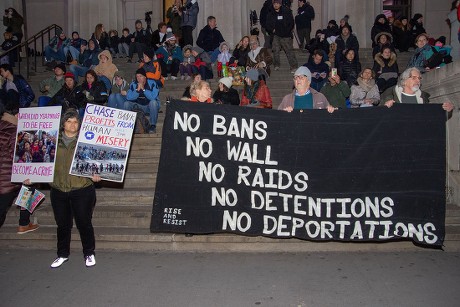 WHEN DID YEARNING
TO BE FREE
BECOME A CRIME
CHASE BANK
PROFITS FROM
HUMAN
MISERY
NO BANS
NO WALL
NO RAIDS
NO DETENTIONS
NO DEPORTATIONS
RISE
AND
RESIST